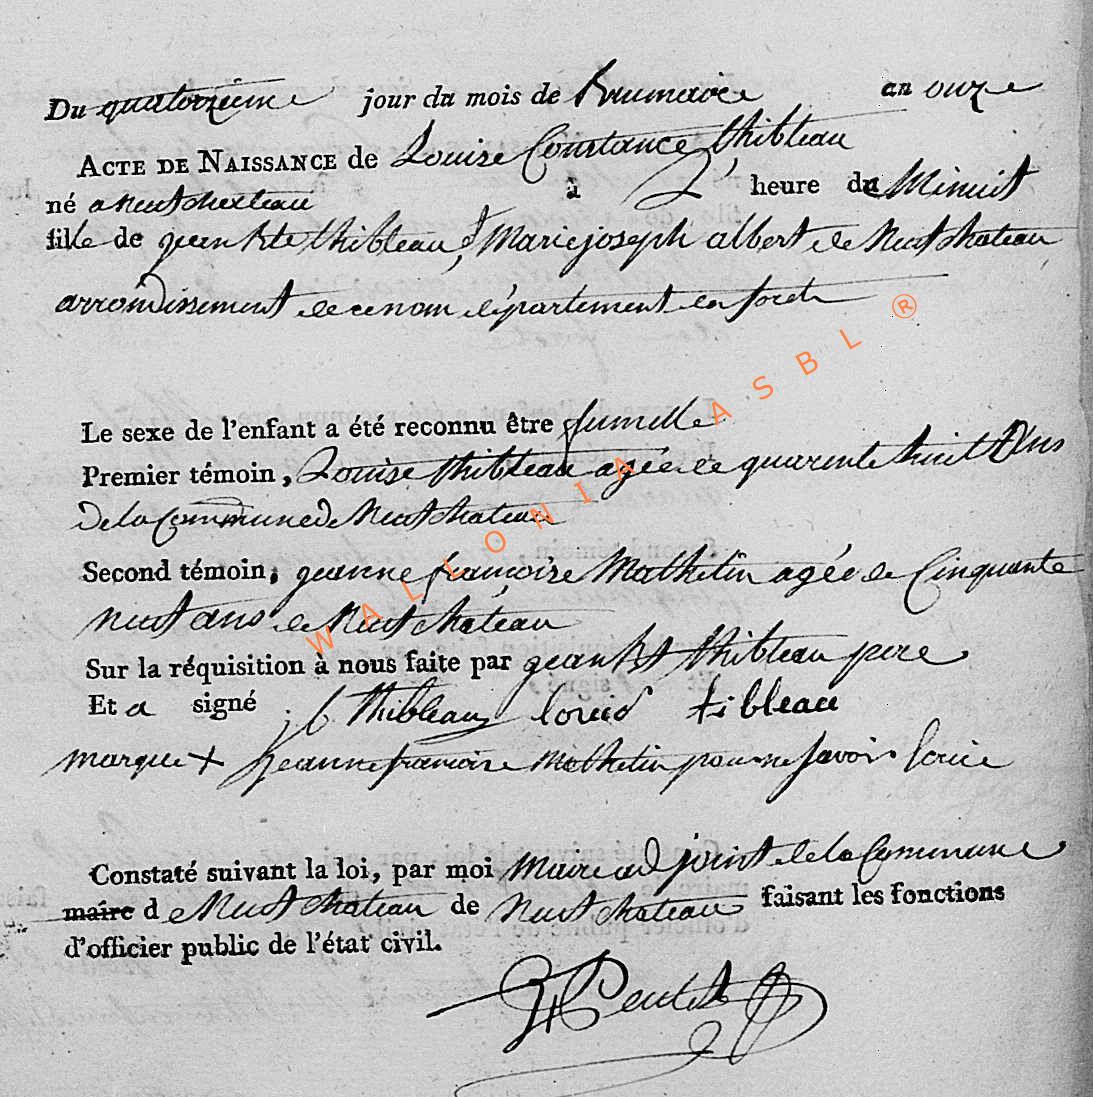 Du quatorzieme jour du mois de Brumaire an onze
ACTE DE NAISSANCE de Louise Constance thibleau
né a neufchateau à 2 heure du Minuit
fille de jean bte thibleau, et Marie joseph albert de Neufchateau
arrondissement de ce nom département des foret
Le sexe de l'enfant a été reconnu être fumelle
Premier témoin, Louise thibleau agée de quarente huit Ans
De la Commune de Neufchateau
Second témoin, jeanne françoise Mathelin agée de Cinquante
neuf ans de Neufchateau
Sur la réquisition à nous faite par jean bt thibleau pere
Et a signé j b thibleau louis tibleau
marque + jeanne francoise Mathelin pour ne savoir
Constaté suivant la loi, par moi Maire adjoint de la Commune
maire d Neufchateau de Neufchateau faisant les fonctions
d'officier public de l'état civil.
WALLONIA ASBL ®